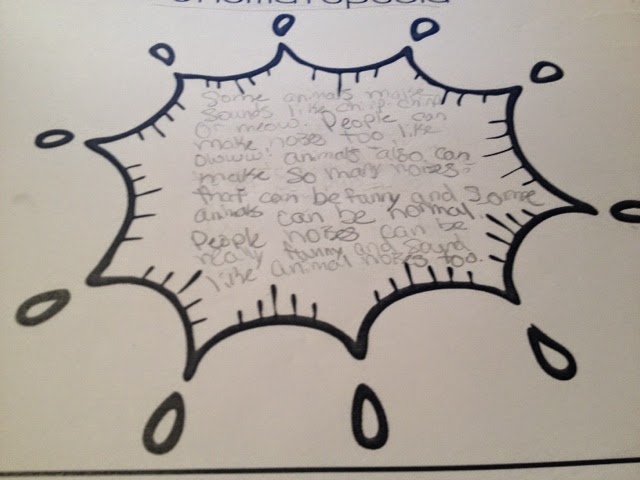 Onomatopoeia
Some animals make
sounds like chirp chirp
Or meow. People can
make noises too like
owww! animals also can
make so many noises
that can be funny and Some
animals can be normal.
People noises can be
really funny and Sound
like animal noises too.